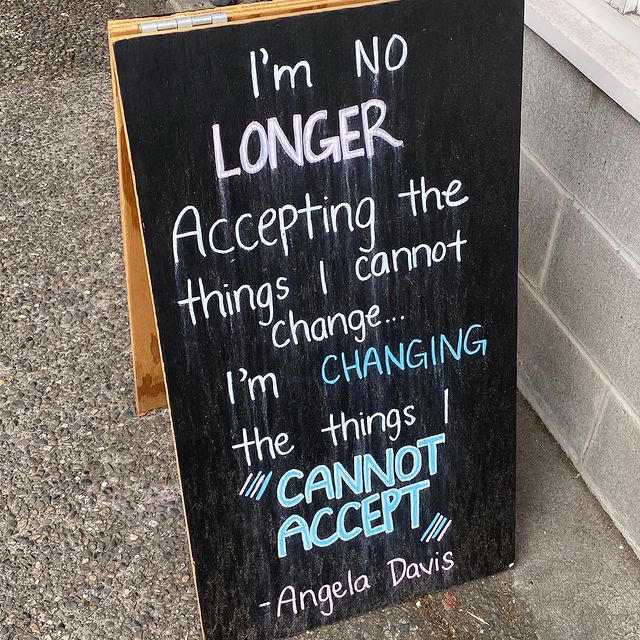 I'm NO
LONGER
Accepting the
things I cannot
change...
I'm CHANGING
the things I
"CANNOT
ACCEPT"
- Angela Davis